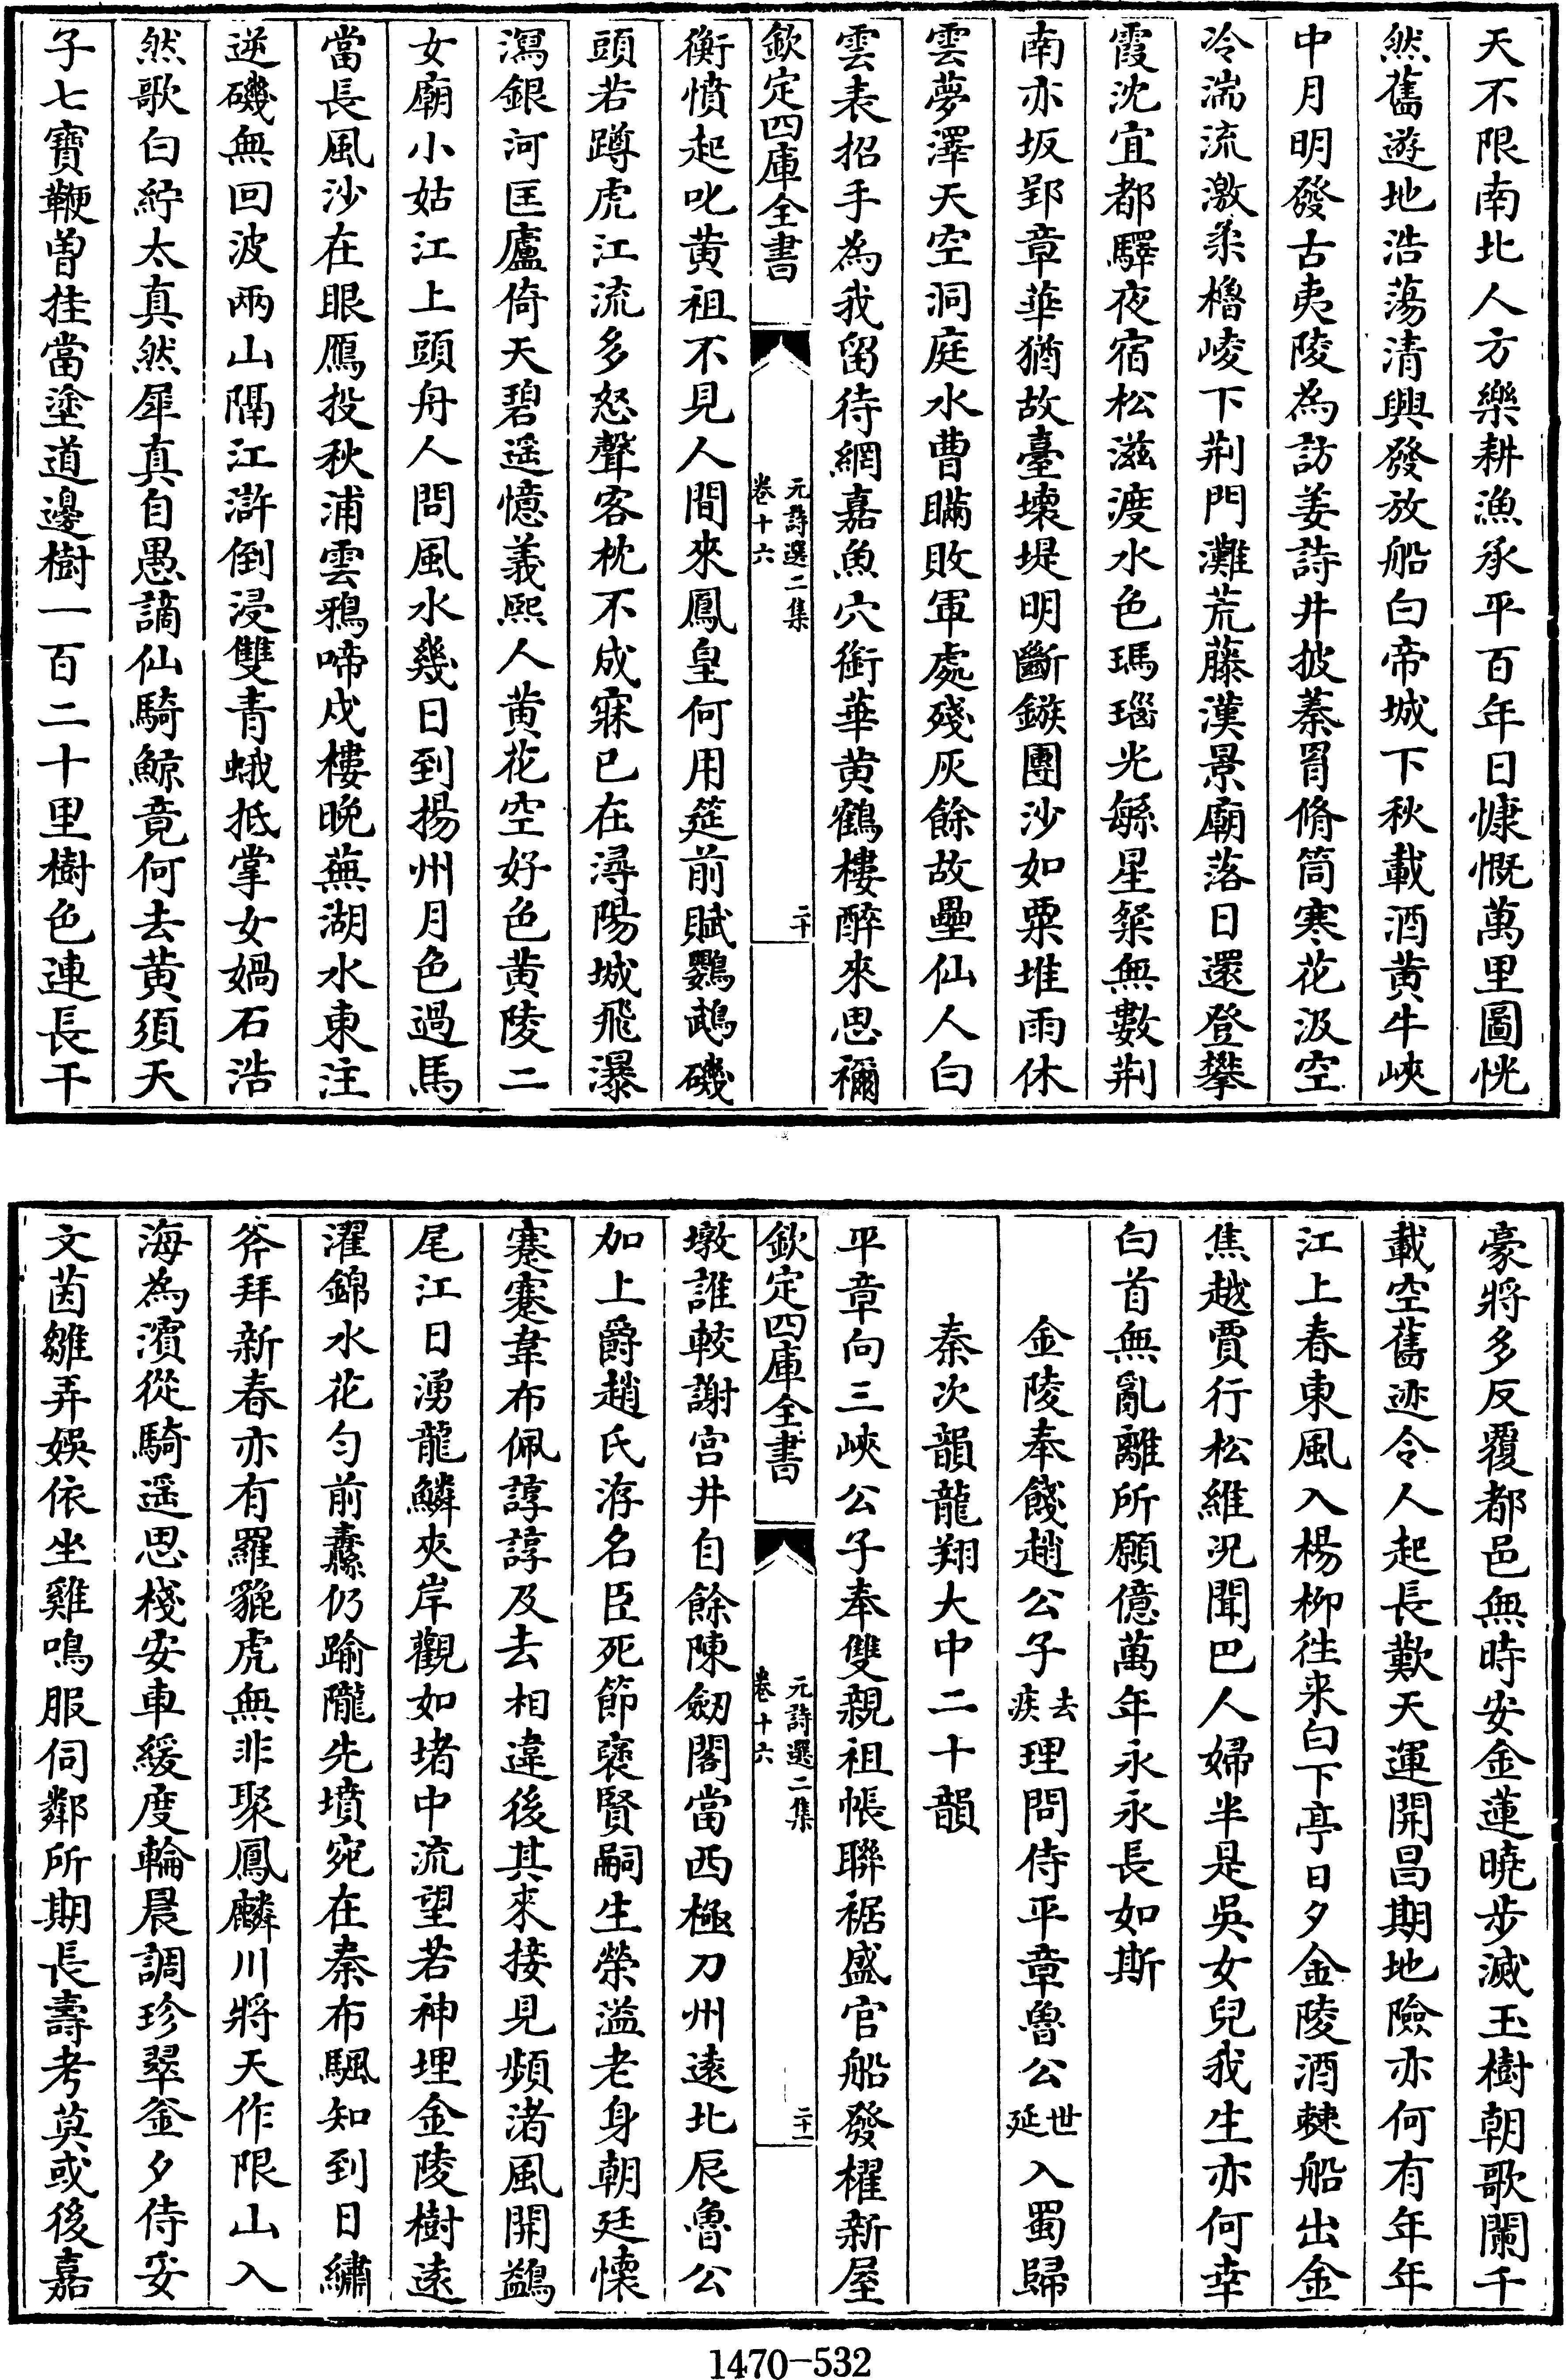 天不限南北人方樂耕漁承平百年日慷慨萬里圖恍
然舊遊地浩蕩清興發放船白帝城下秋載酒黄牛峽
中月明發古夷陵為訪姜詩井披蓁胃脩筒寒花汲空
冷湍流激柔櫓崚下荆門灘荒藤漢景廟落日還登攀
霞沈宜都驛夜宿松滋渡水色瑪瑙光繇星粲無數荆
南亦坂郢章華猶故臺壊堤明斷鏃團沙如粟堆雨休
雲夢澤天空洞庭水曹瞞敗軍處殘灰餘故壘仙人白
雲表招手為我留待網嘉魚穴銜華黄鶴樓醉來思禰
欽定四庫全書
元詩選二集
卷十六
二十
衡憤起叱黄祖不見人間來鳳皇何用筵前賦鸚鵡磯
頭若蹲虎江流多怒聲客枕不成寐已在潯陽城飛瀑
瀉銀河匡廬倚天碧遥憶義熙人黄花空好色黄陵二
女廟小姑江上頭舟人問風水幾日到揚州月色過馬
當長風沙在眼鴈投秋浦雲鴉啼戍樓晚蕪湖水東注
逆磯無回波兩山隔江滸倒浸雙青蛾抵掌女媧石浩
然歌白紵太真然犀真自愚謫仙騎鯨竟何去黄須天
子七寶鞭曽挂當塗道邊樹一百二十里樹色連長干
豪將多反覆都邑無時安金蓮曉步滅玉樹朝歌闌千
載空舊迹令人起長歎天運開昌期地險亦何有年年
江上春東風入楊柳徃来白下亭日夕金陵酒棘船出金
焦越賈行松維况聞巴人婦半是吳女兒我生亦何幸
白首無亂離所願億萬年永永長如斯
金陵奉餞趙公子去疾理問侍平章魯公世延入蜀歸
秦次韻龍翔大中二十韻
平章向三峽公子奉雙親祖帳聯裾盛官船發櫂新屋
欽定四庫全書
元詩選二集
卷十六
二十一
墩誰較謝宫井自餘陳劒閣當西極刀州逺北辰魯公
加上爵趙氏洊名臣死節褒賢嗣生榮溢老身朝廷懷
蹇蹇韋布佩諄諄及去相違後其來接見頻渚風開鷁
尾江日湧龍鱗夾岸觀如堵中流望若神埋金陵樹逺
濯錦水花匀前纛仍踰隴先墳宛在秦布颿知到日繡
斧拜新春亦有羅貔虎無非聚鳳麟川將天作限山入
海為濱從騎遥思棧安車緩度輪晨調珍翠釜夕侍安
文茵雛弄娛依坐雞鳴服伺鄰所期長壽考莫或後嘉
1470-532